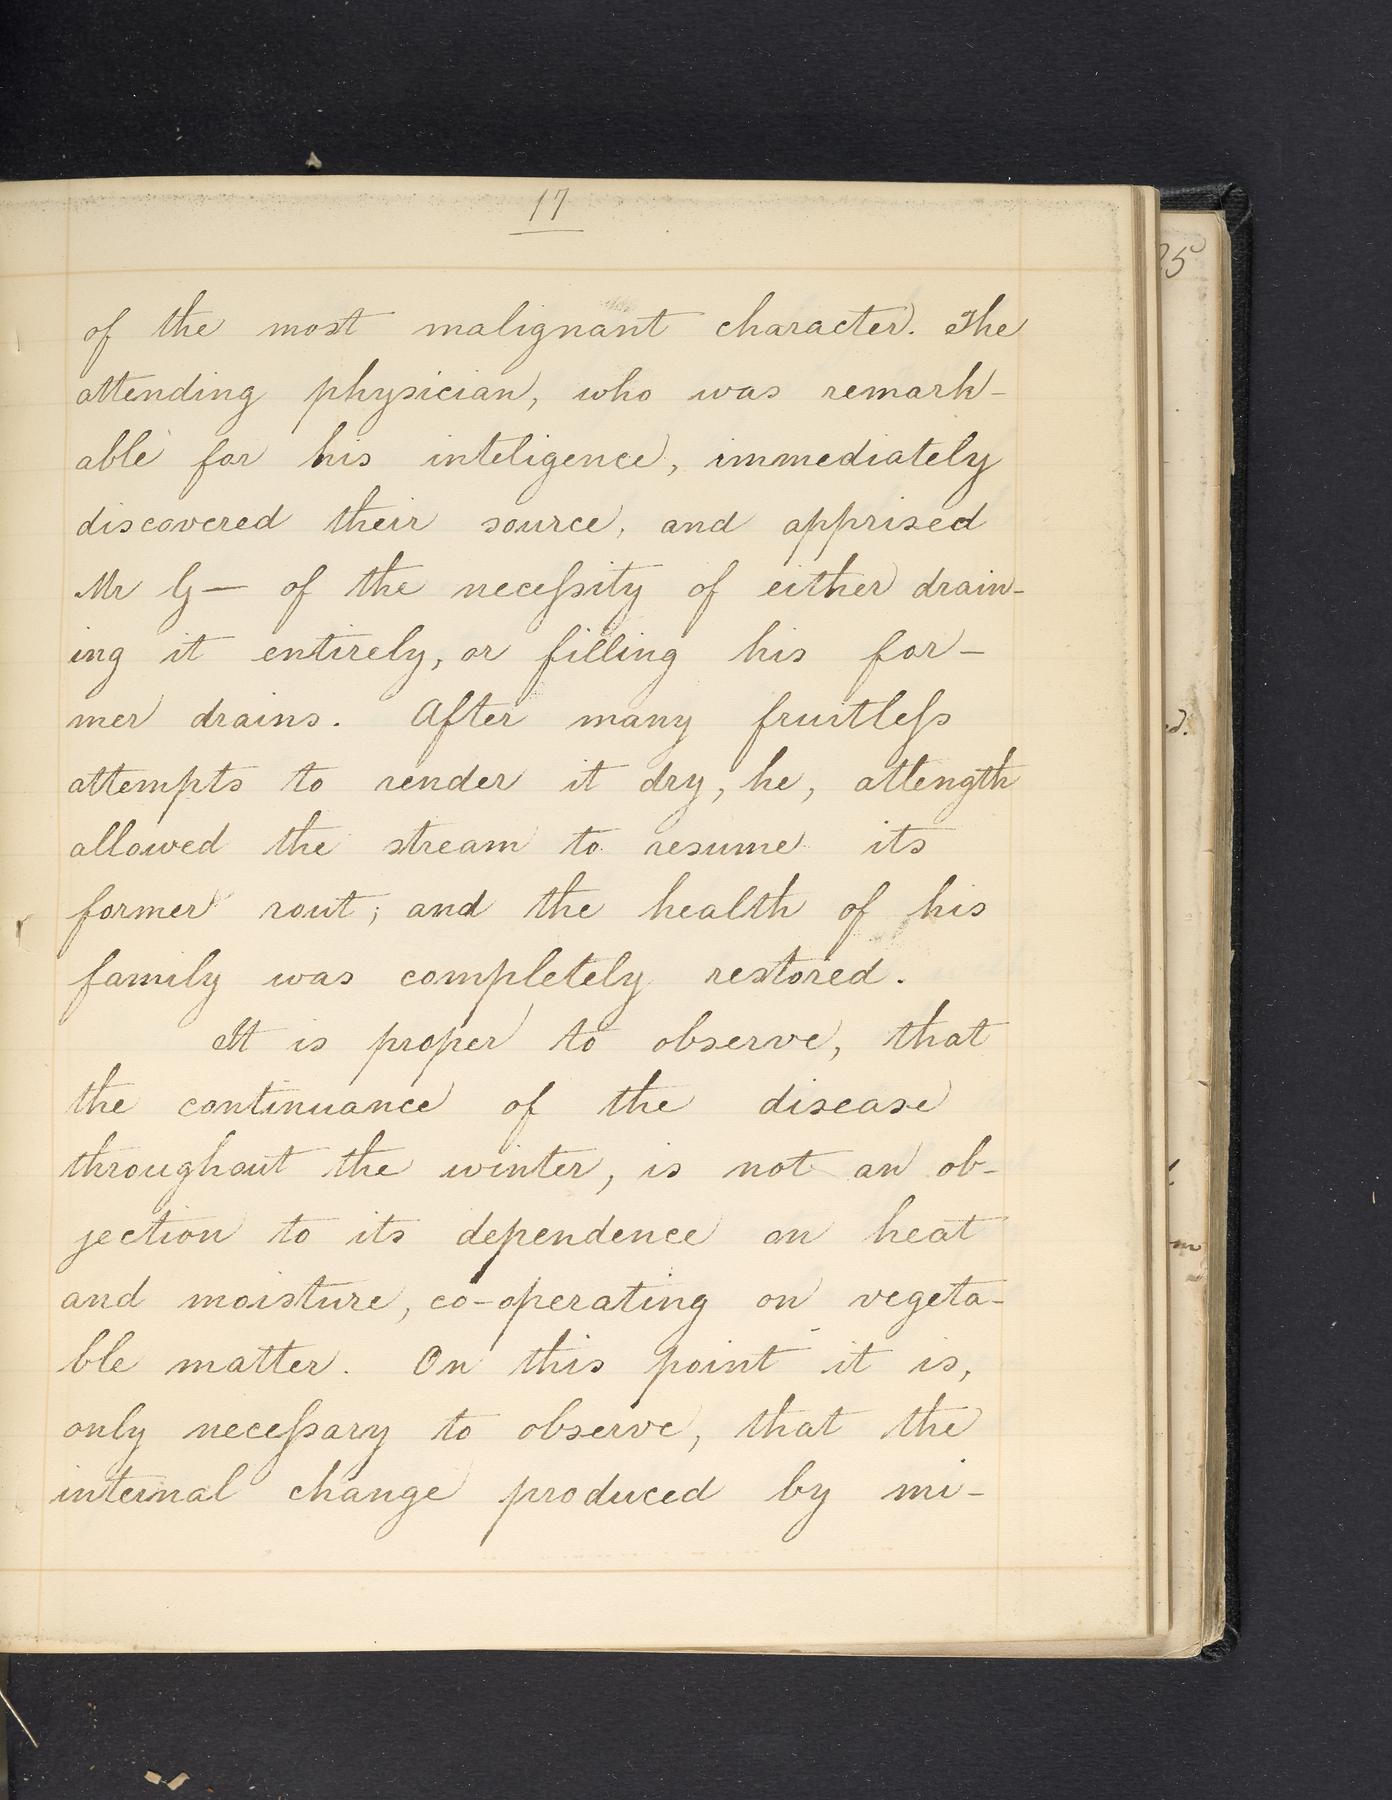 17
25
of the most malignant character. The
attending physician, who was remark-
able for his inteligence, immediately
discovered their source, and apprised
Mr G— of the neceſsity of either drain-
ing it entirely, or filling his for-
mer drains. After many fruitleſs
attempts to render it dry, he, atlength
allowed the stream to resume its
former rout; and the health of his
family was completely restored.
It is proper to observe, that
the continuance of the disease
throughout the winter, is not an ob-
jection to its dependence on heat
and moisture, co-operating on vegeta-
ble matter. On this point it is,
only neceſsary to observe, that the
internal change produced by mi-